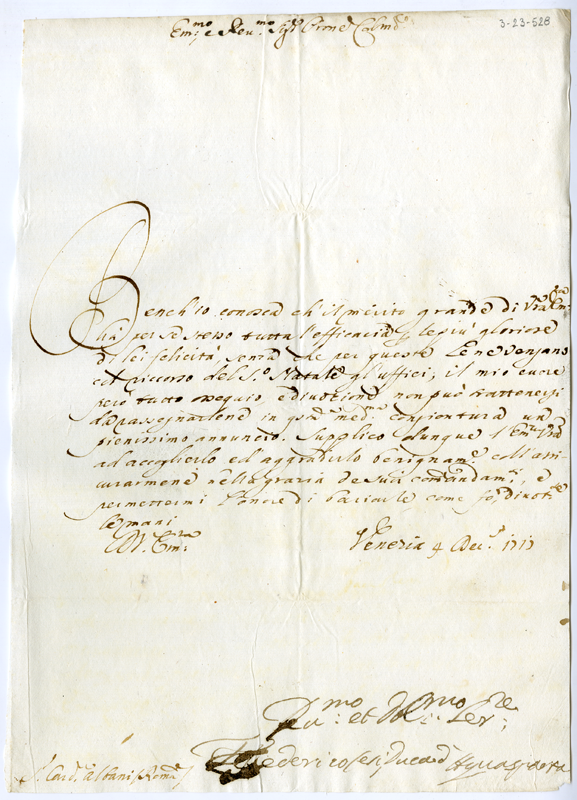 3-23-528
Em:mo e Reu:mo Sigr Prone Colmo
Bench'io conosca ch'il merito grande di Vra Em:za
hà per sè stesso tutta l'efficacia p le più gloriose
di lei felicità, senza che per queste Le ne vengano
col ricorso del S.o Natale gl'uffici; il mio cuore
però tutto ossequio, e diuotione non può trattenersi
da rassegnarlene in questa med:ma congiontura un
pienissimo annuncio. Supplico dunque l'Em:za Vra
ad accoglierlo ed aggradirlo benignamte coll'assi-
curarmene nella gratia de suoi comandamti, e
permettermi l'onore di baciarle come fò diuote
le mani
Di V. Em:za
Venezia 4 Dec. 1717
Deu:mo et Obl:mo Ser:re
Federico Duca d'Aquasparta
S. Card. Albani Roma